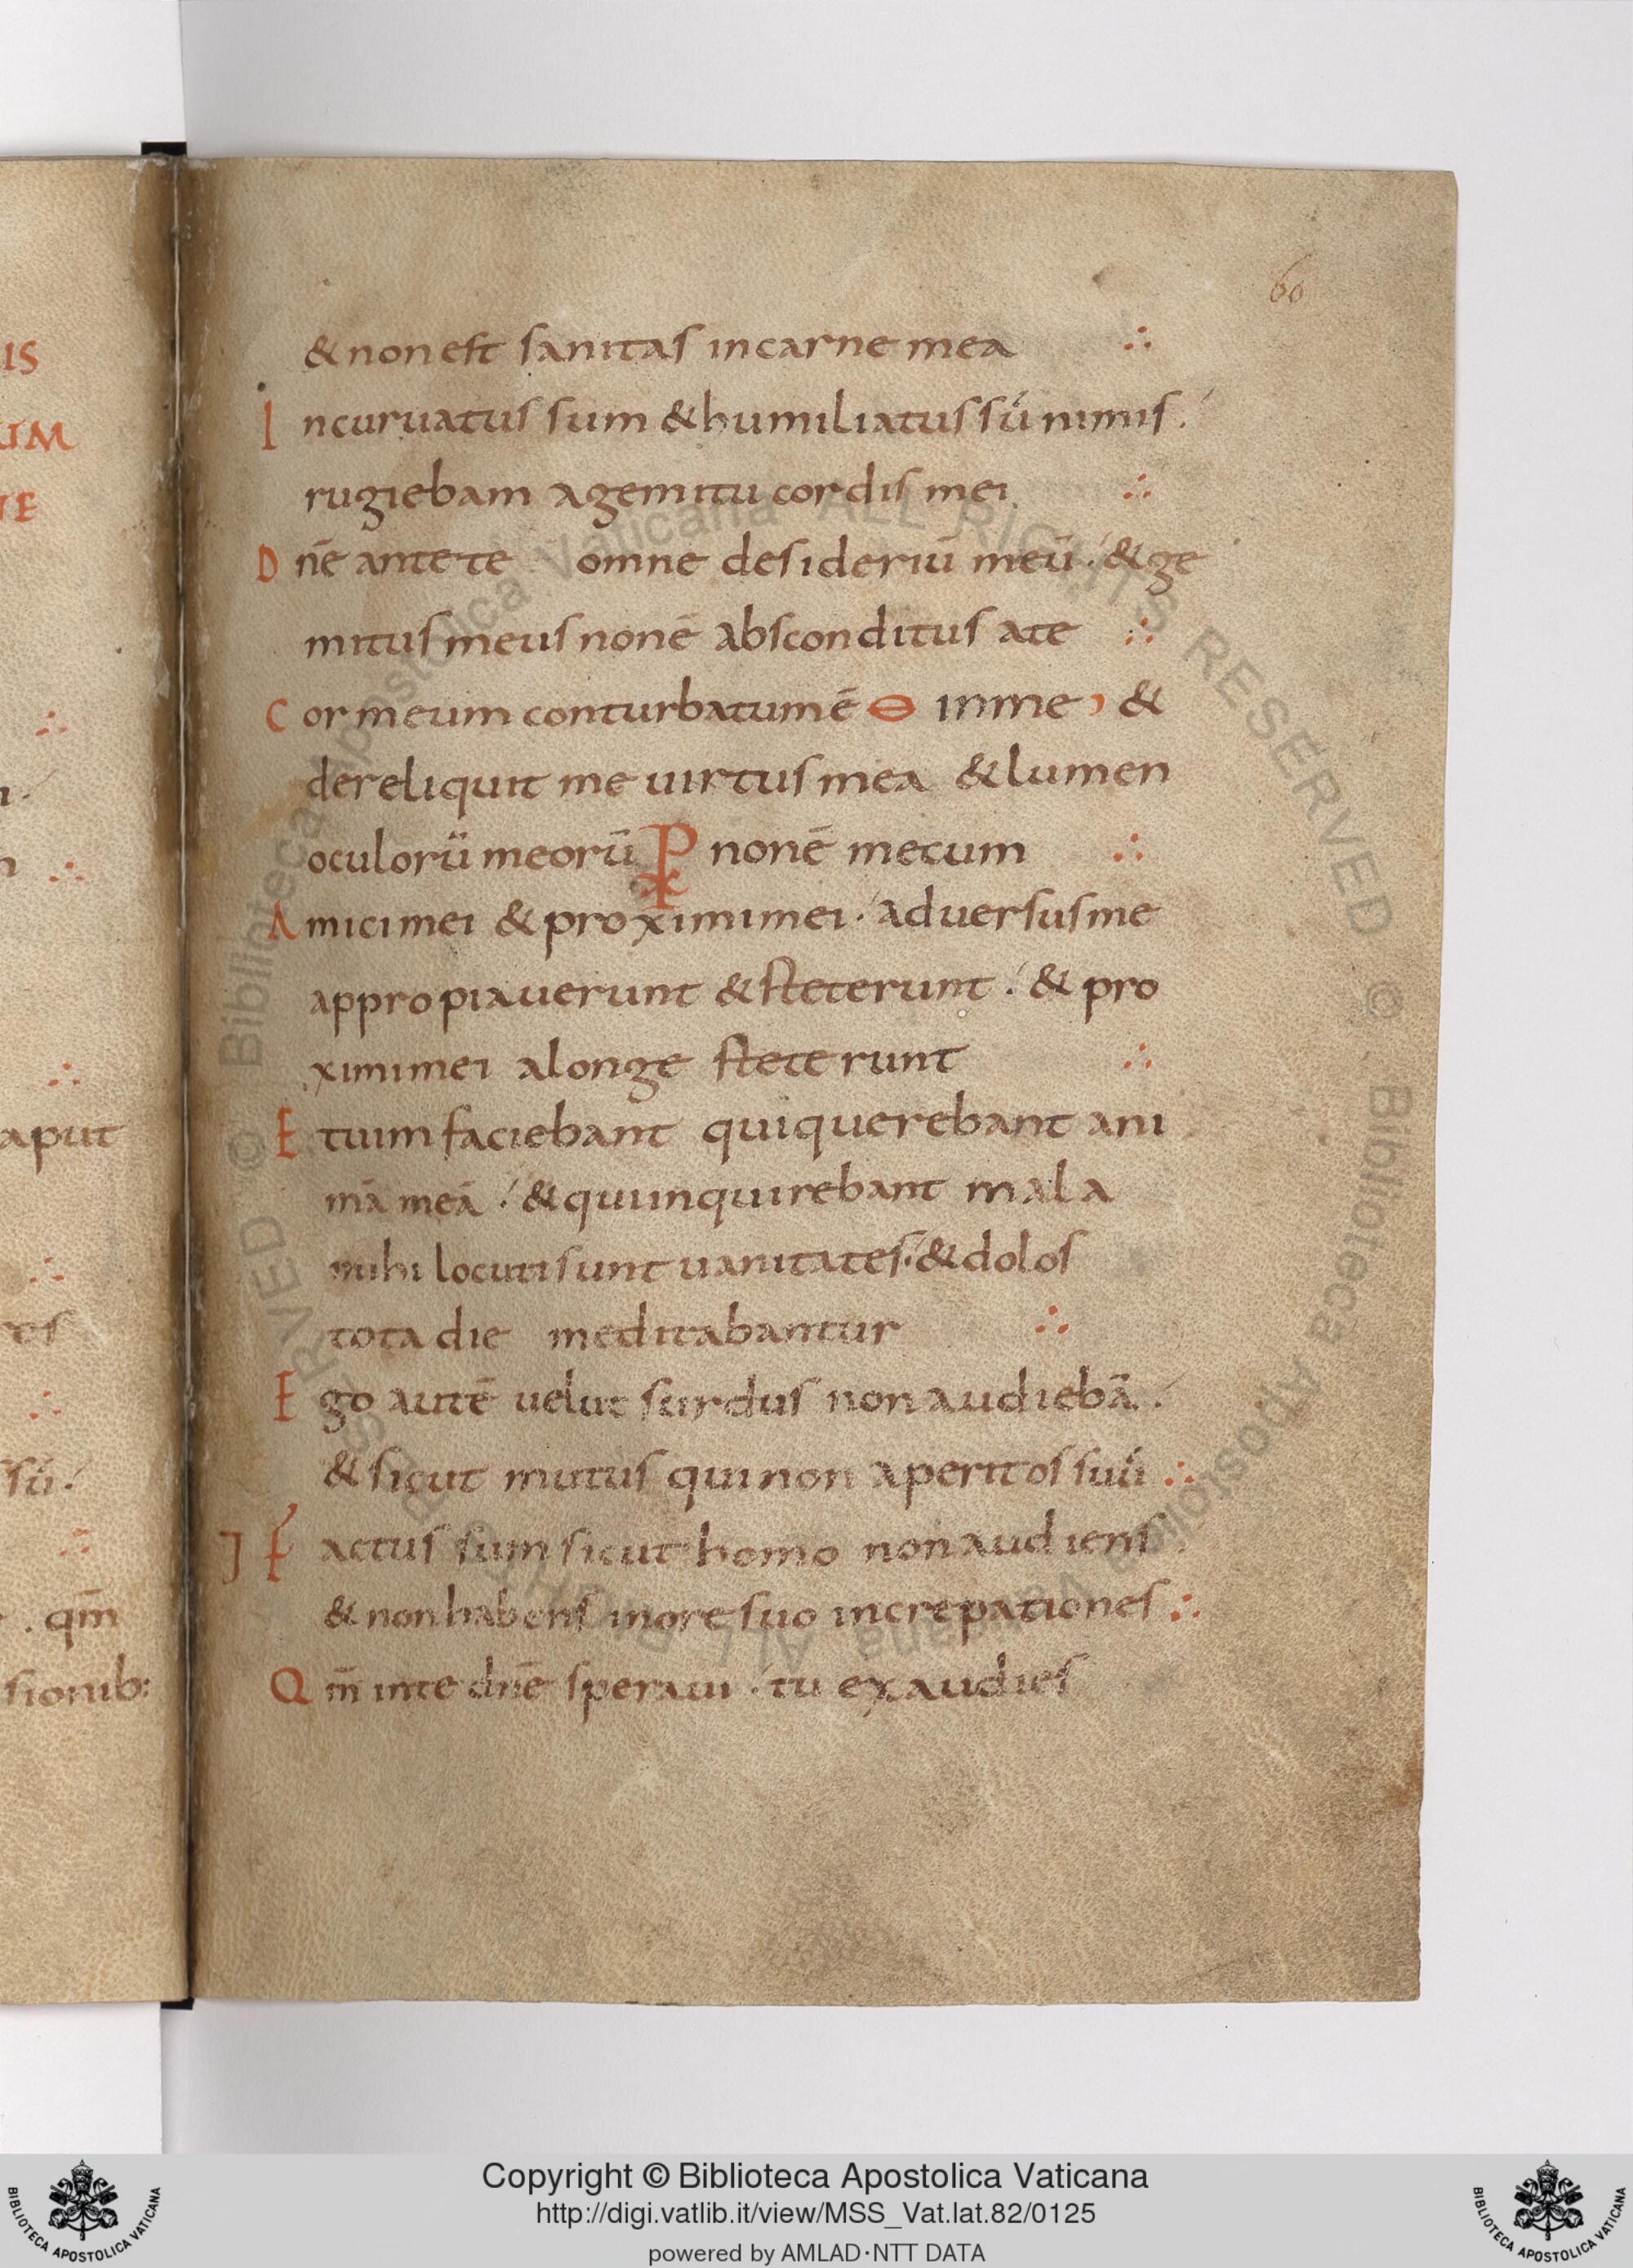 60
& non est sanitas in carne mea ∴
Incuruatus sum & humiliatus sū nimis
rugiebam a gemitu cordis mei ∴
Dn̄e ante te omne desideriū meū & ge
mitus meus non ē absconditus a te ∴
Cor meum conturbatum ē in me &
dereliquit me uirtus mea & lumen
oculorū meorū non ē mecum ∴
Amici mei & proximi mei aduersus me
appropiauerunt & steterunt & pro
ximi mei a longe steterunt ∴
Et uim faciebant qui querebant ani
mā meā & qui inquirebant mala
mihi locuti sunt uanitates & dolos
tota die meditabantur ∴
Ego autē uelut surdus non audiebā
& sicut mutus qui non aperit os suū ∴
Factus sum sicut homo non audiens
& non habens in ore suo increpationes ∴
Qm̄ in te dn̄e speraui tu exaudies
IS
UM
TE
aput
qm̄
sionib:
Copyright © Biblioteca Apostolica Vaticana
http://digi.vatlib.it/view/MSS_Vat.lat.82/0125
powered by AMLAD·NTT DATA
BIBLIOTECA APOSTOLICA VATICANA
BIBLIOTECA APOSTOLICA VATICANA